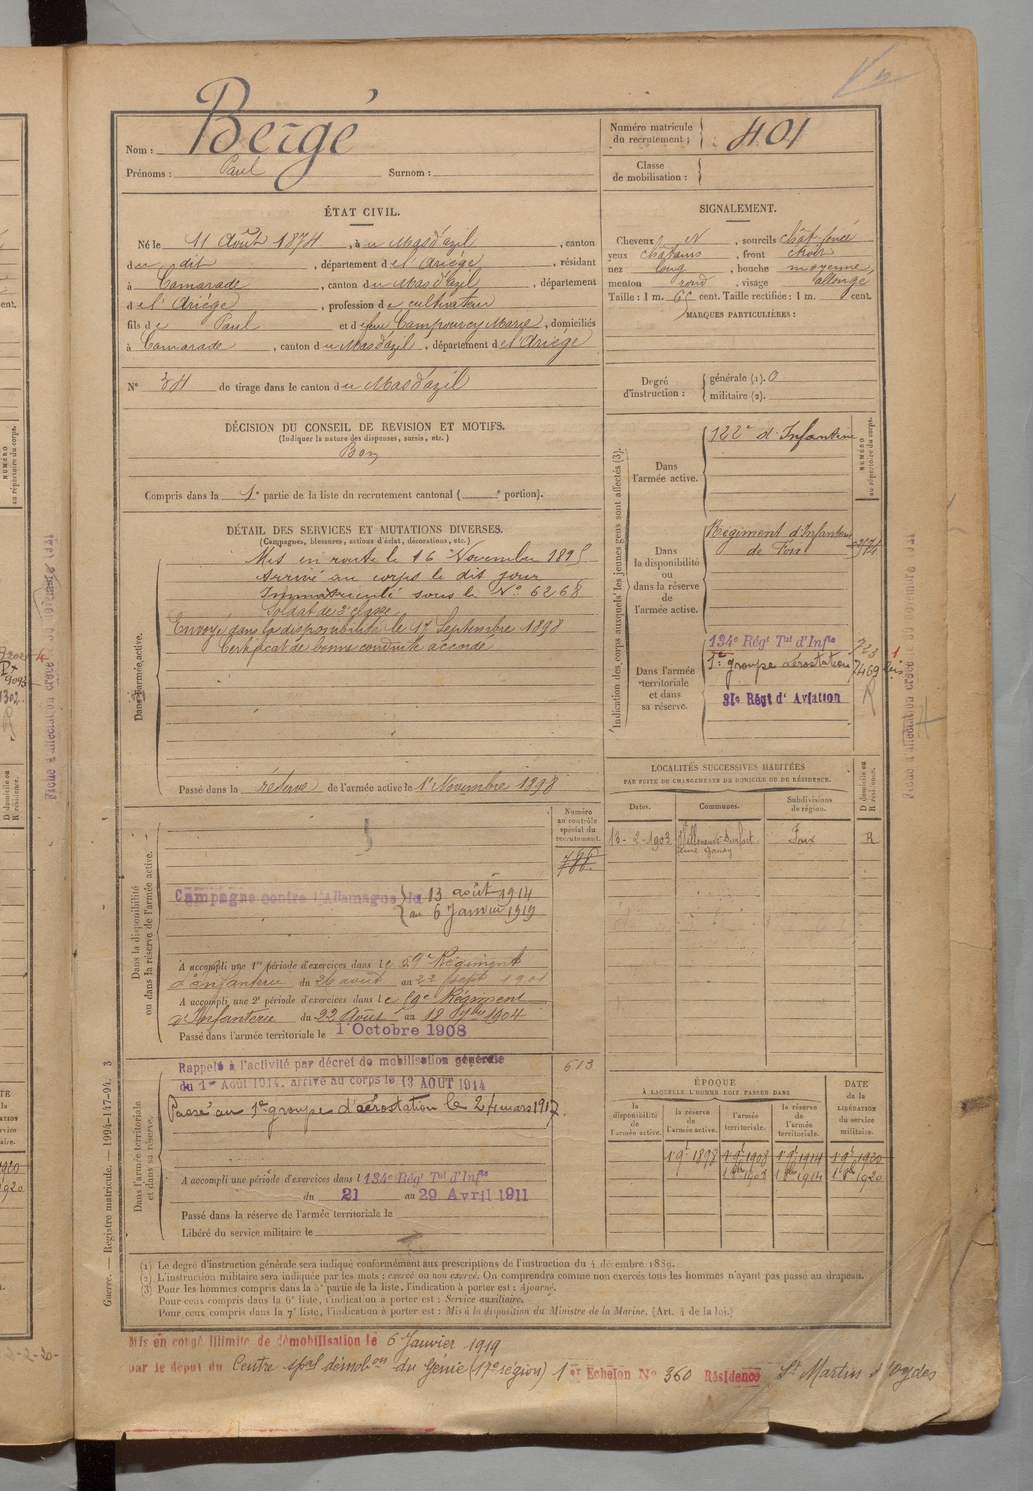 Bergé
Nom :
Prénoms : Paul Surnom :
Numéro matricule du recrutement : 401
Classe de mobilisation :
ÉTAT CIVIL.
Né le 11 Août 1874, à u Masdazil, canton
du dit, département de l'Ariège, résidant
à Camarade, canton du Masdazil, département
de l'Ariège, profession de cultivateur
fils de Paul et de feue Campourcy Marie, domiciliés
à Camarade, canton du Masdazil, département de l'Ariège
N° 34 de tirage dans le canton du Masdazil
SIGNALEMENT.
Cheveux N, sourcils chât foncé
yeux châtains, front étroit
nez long, bouche moyenne,
menton rond, visage allongé
Taille : 1 m. 65 cent. Taille rectifiée : 1 m. cent.
MARQUES PARTICULIÈRES :
Degré d'instruction :
générale (1). 0
militaire (2).
DÉCISION DU CONSEIL DE REVISION ET MOTIFS.
(Indiquer la nature des dispenses, sursis, etc.)
Bon
Compris dans la 1e partie de la liste du recrutement cantonal ( e portion).
DÉTAIL DES SERVICES ET MUTATIONS DIVERSES.
(Campagnes, blessures, actions d'éclat, décorations, etc.)
Dans l'armée active.
Mis en route le 16 Novembre 1895
Arrivé au corps le dit jour
Immatriculé sous le N° 6268
Soldat de 2e classe
Envoyé dans la disponibilité le 17 Septembre 1898
Certificat de bonne conduite accordé
Passé dans la réserve de l'armée active le 1er Novembre 1898
Indication des corps auxquels les jeunes gens sont affectés (3).
NUMÉRO au répertoire du corps.
Dans l'armée active.
122e d'Infanterie
Dans la disponibilité ou dans la réserve de l'armée active.
Régiment d'Infanterie
de Foix
Dans l'armée territoriale et dans sa réserve.
134e Régt Tal d'Infie
1er groupe d'aérostation
31e Régt d'Aviation
723
7469
R
LOCALITÉS SUCCESSIVES HABITÉES
PAR SUITE DE CHANGEMENTS DE DOMICILE OU DE RÉSIDENCE.
D domicile ou R résidence.
Dates. Communes. Subdivisions de région.
13-2-1903 Foix R
Dans la disponibilité ou dans la réserve de l'armée active.
Numéro au contrôle spécial du recrutement.
788
Campagne contre l'Allemagne du 13 août 1914
au 6 Janvier 1919
A accompli une 1re période d'exercices dans le 59e Régiment
d'Infanterie du 26 août au 22 sept 1901
A accompli une 2e période d'exercices dans le 59e Régiment
d'Infanterie du 22 Août au 18 7bre 1904
Passé dans l'armée territoriale le 1 Octobre 1908
Dans l'armée territoriale et dans sa réserve.
613
Rappelé à l'activité par décret de mobilisation générale
du 1er Août 1914, arrivé au corps le 13 AOUT 1914
Passé au 1er groupe d'aérostation le 24 mars 1917.
A accompli une période d'exercices dans l 134e Régt Tal d'Infie
du 21 au 29 Avril 1911
Passé dans la réserve de l'armée territoriale le
Libéré du service militaire le
ÉPOQUE
À LAQUELLE L'HOMME DOIT PASSER DANS
DATE de la LIBÉRATION du service militaire.
la disponibilité de l'armée active.
la réserve de l'armée active.
l'armée territoriale.
la réserve de l'armée territoriale.
1 9e 1898 1 9e 1908 1 9e 1914 1 9e 1920
1 8bre 1908 1 8bre 1914 1 8bre 1920
(1) Le degré d'instruction générale sera indiqué conformément aux prescriptions de l'instruction du 4 décembre 1889.
(2) L'instruction militaire sera indiquée par les mots : exercé ou non exercé. On comprendra comme non exercés tous les hommes n'ayant pas passé au drapeau.
(3) Pour les hommes compris dans la 5e partie de la liste, l'indication à porter est : Ajourné.
Pour ceux compris dans la 6e liste, l'indication à porter est : Service auxiliaire.
Pour ceux compris dans la 7e liste, l'indication à porter est : Mis à la disposition du Ministre de la Marine. (Art. 4 de la loi.)
Guerre. — Registre matricule. — 1994-147-94. 3
Mis en congé illimité de démobilisation le 6 Janvier 1919
par le dépôt du Centre spal démobon du Génie (17e région) 1er Echelon N° 360 Résidence St Martin d'Oydes